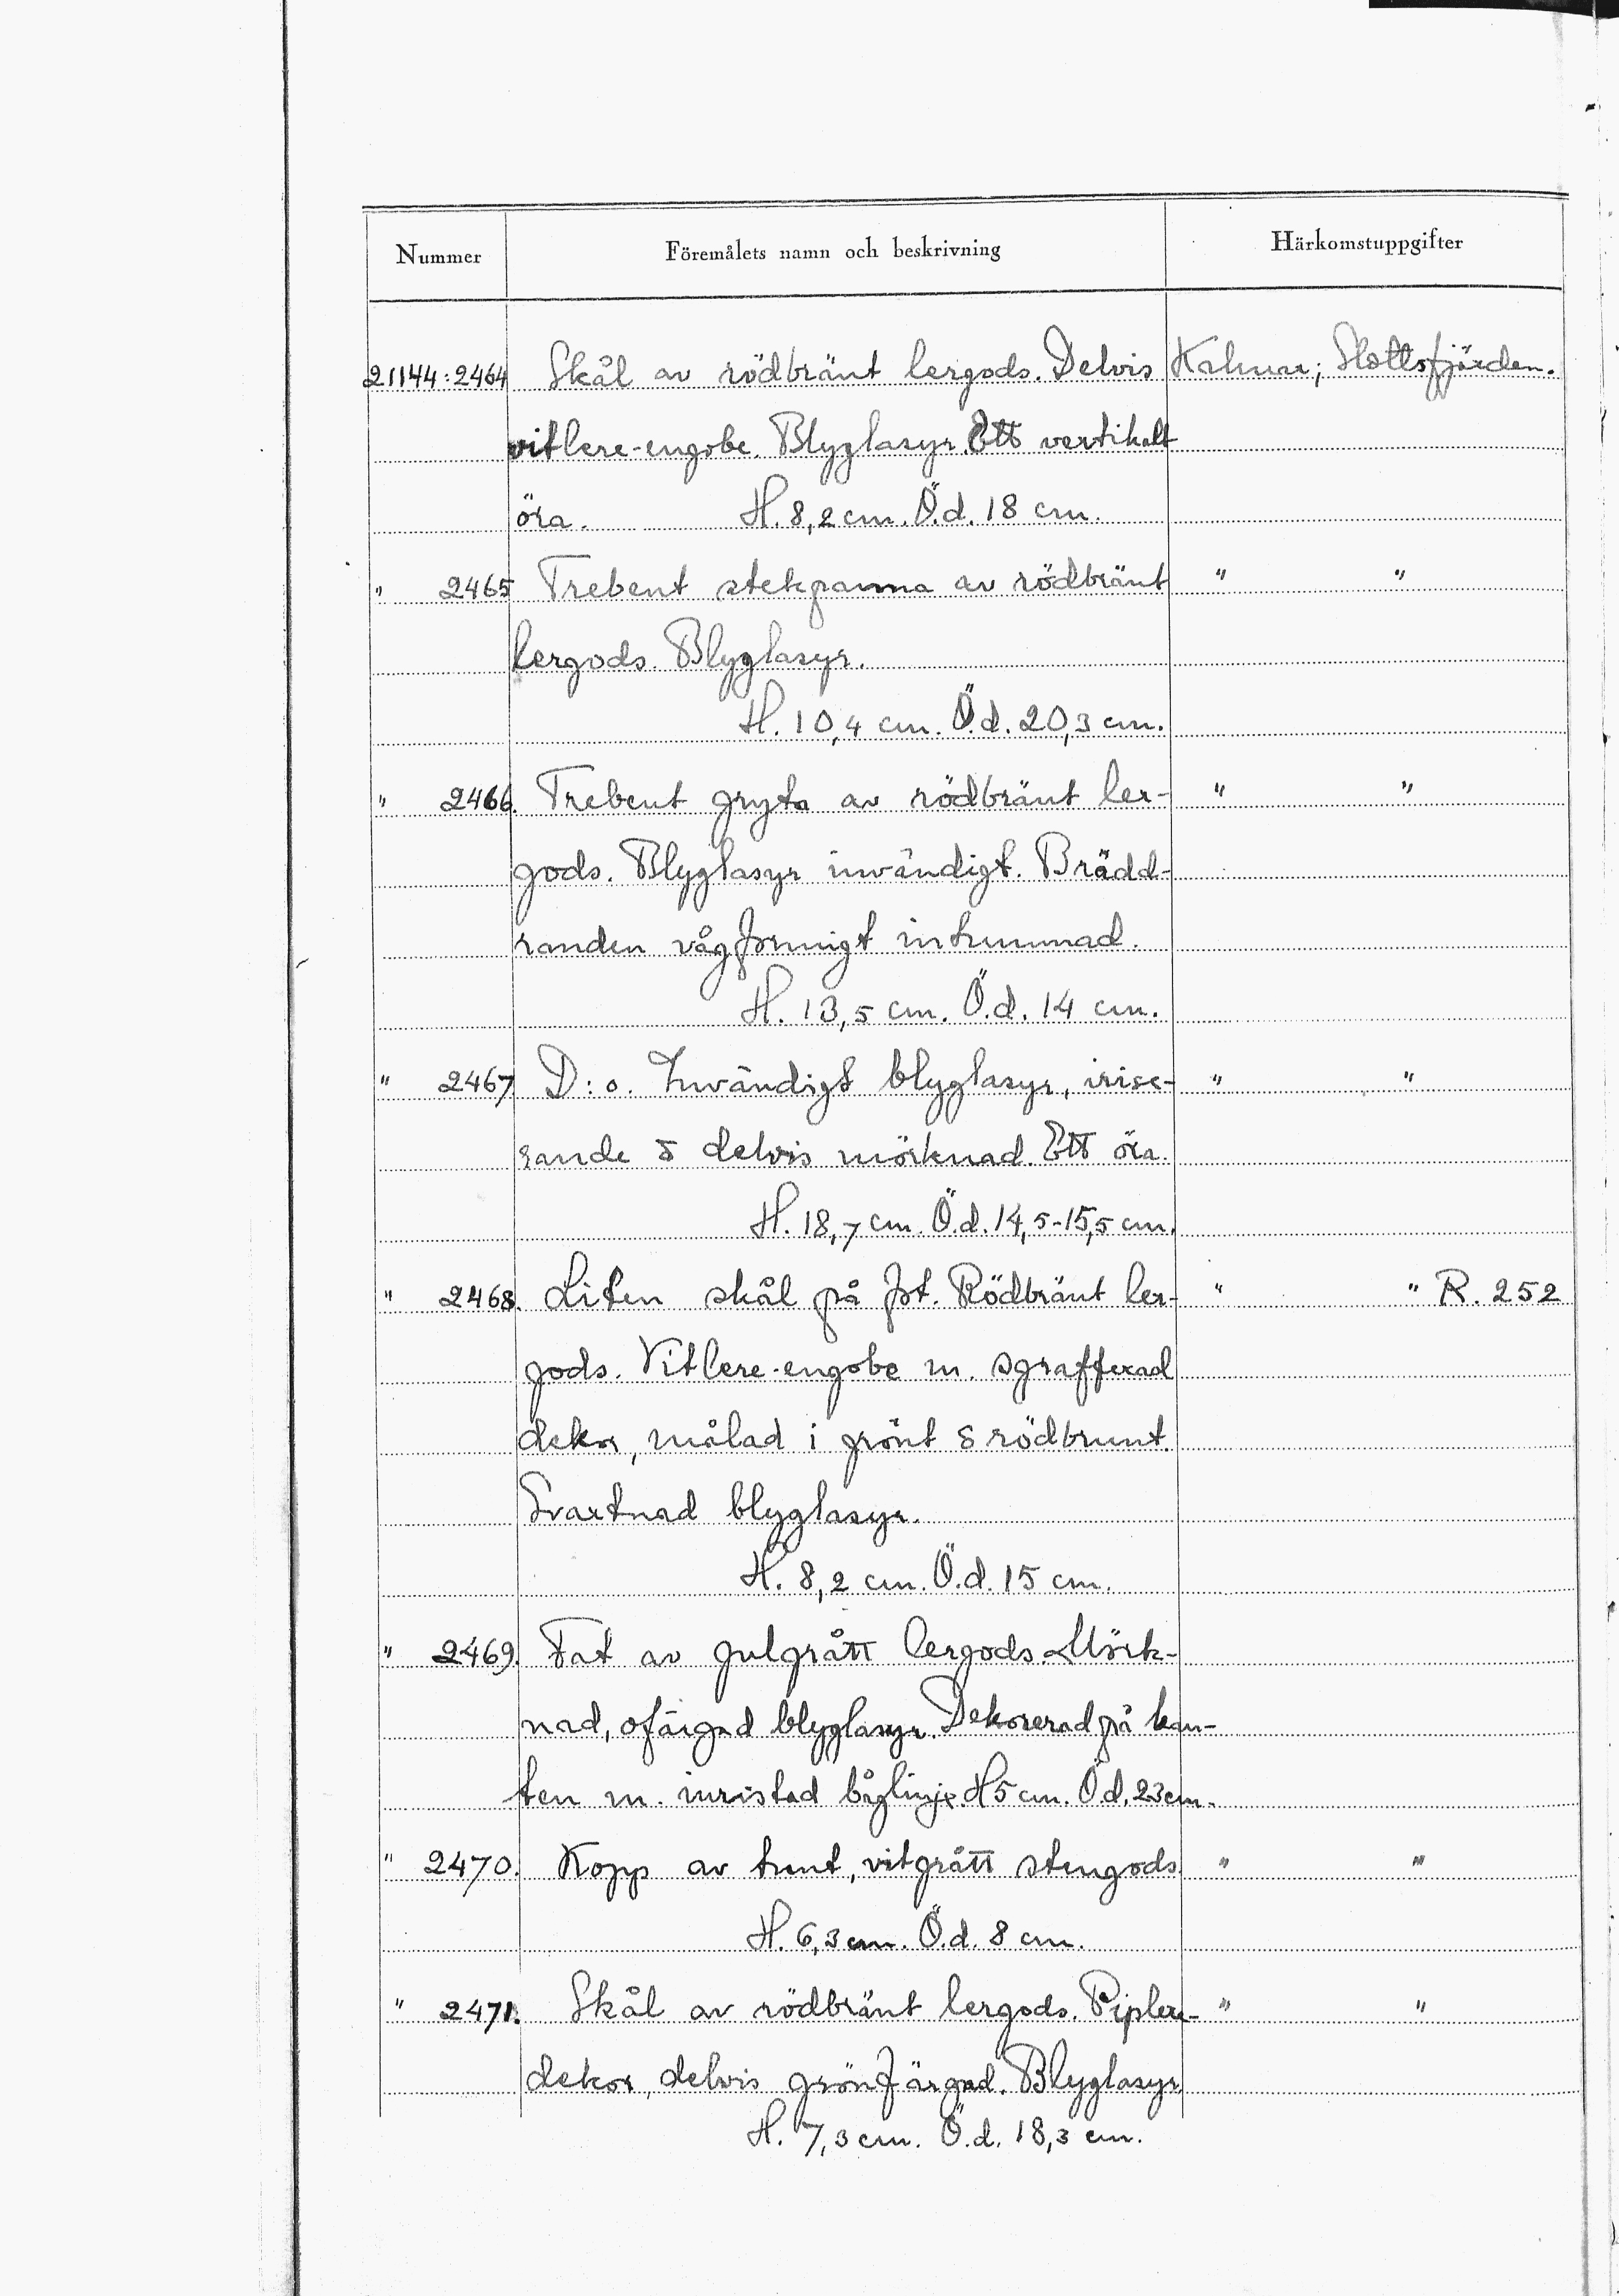 Nummer Föremålets namn och beskrivning Härkomstuppgifter
21144:2464 Skål av rödbränt lergods. Delvis Kalmar; Slottsfjärden.
vitlere-engobe. Blyglasyr. Ett vertikalt
öra. H. 8,2 cm. Ö.d. 18 cm.
" 2465 Trebent stekpanna av rödbränt " "
lergods. Blyglasyr.
H. 10,4 cm. Ö.d. 20,3 cm.
" 2466. Trebent gryta av rödbränt ler- " "
gods. Blyglasyr invändigt. Brädd-
randen vågformigt intummad.
H. 13,5 cm. Ö.d. 14 cm.
" 2467 D:o. Invändigt blyglasyr, irise- " "
rande & delvis mörknad. Ett öra.
H. 18,7 cm. Ö.d. 14,5-15,5 cm.
" 2468. Liten skål på fot. Rödbränt ler- " " R. 252
gods. Vitlere-engobe m. sgrafferad
dekor, målad i grönt & rödbrunt.
Svartnad blyglasyr.
H. 8,2 cm. Ö.d. 15 cm.
" 2469. Fat av gulgrått lergods. Mörk-
nad, ofärgad blyglasyr. Dekorerad på kan-
ten m. inristad båglinje. H 5 cm. Ö.d. 23 cm.
" 2470. Kopp av tunt, vitgrått stengods. " "
H. 6,3 cm. Ö.d. 8 cm.
" 2471. Skål av rödbränt lergods. Piplere- " "
dekor, delvis grönfärgad. Blyglasyr.
H. 7,3 cm. Ö.d. 18,3 cm.